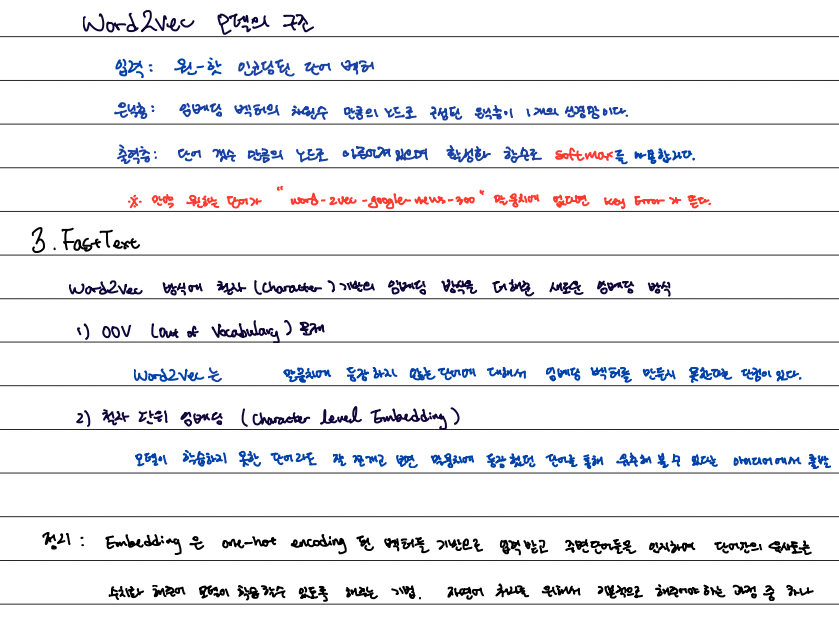 Word2Vec 모델의 구조
입력 : 원-핫 인코딩된 단어 벡터
은닉층 : 임베딩 벡터의 차원수 만큼의 노드로 구성된 은닉층이 1개의 신경망이다.
출력층 : 단어 갯수 만큼의 노드로 이루어져 있으며 활성화 함수로 softmax를 사용합니다.
※ 만약 원하는 단어가 "word-2vec-google-news-300" 말뭉치에 없다면 Key Error가 뜬다.
3. FastText
Word2Vec 방식에 철자 (Character) 기반의 임베딩 방식을 더해준 새로운 임베딩 방식
1) OOV (Out of Vocabulary) 문제
Word2Vec는 말뭉치에 등장하지 않는 단어에 대해서 임베딩 벡터를 만들지 못한다는 단점이 있다.
2) 철자 단위 임베딩 (Character level Embedding)
모델이 학습하지 못한 단어라도 잘 쪼개고 보면 말뭉치에 등장했던 단어를 통해 유추해 볼 수 있다는 아이디어에서 출발
정리 : Embedding은 one-hot encoding 된 벡터를 기반으로 입력받고 주변단어들을 인지하여 단어간의 유사도를
수치화 해주어 모델이 학습할수 있도록 해주는 기법. 자연어 처리를 위해서 기본적으로 해주어야 하는 과정 중 하나